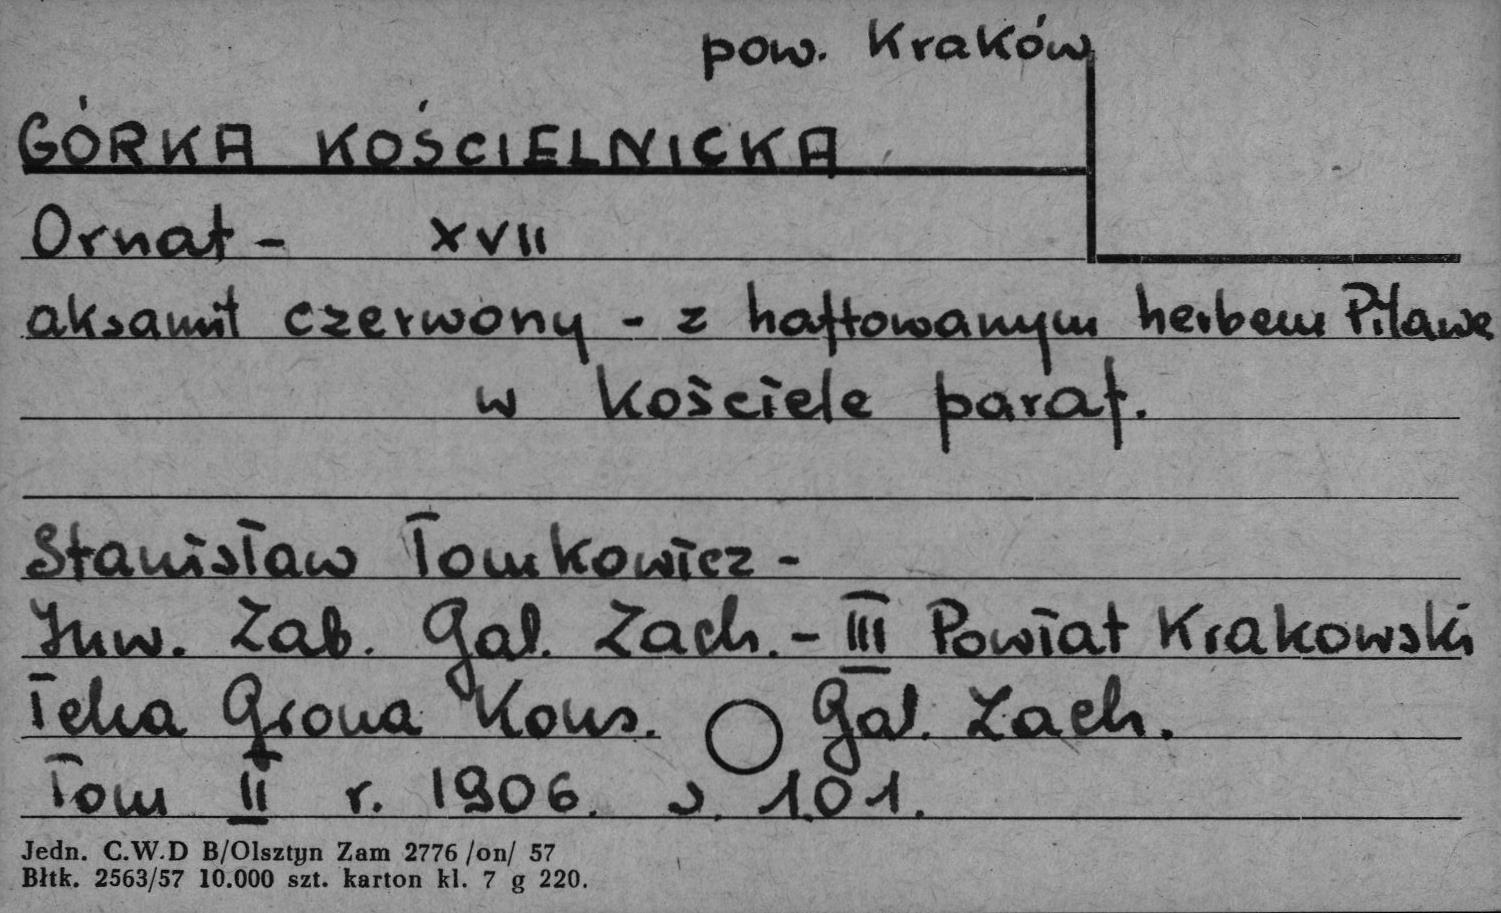 pow. Kraków
GÓRKA KOŚCIELNICKA
Ornat - XVII
aksamit czerwony - z haftowanym herbem Pilawa
w kościele paraf.
Stanisław Tomkowicz -
Inw. Zab. Gal. Zach. - III Powiat Krakowski
Teka Grona Kons. Gal. Zach.
Tom II r. 1906. s. 101.
Jedn. C.W.D B/Olsztyn Zam 2776 /on/ 57
Błtk. 2563/57 10.000 szt. karton kl. 7 g 220.